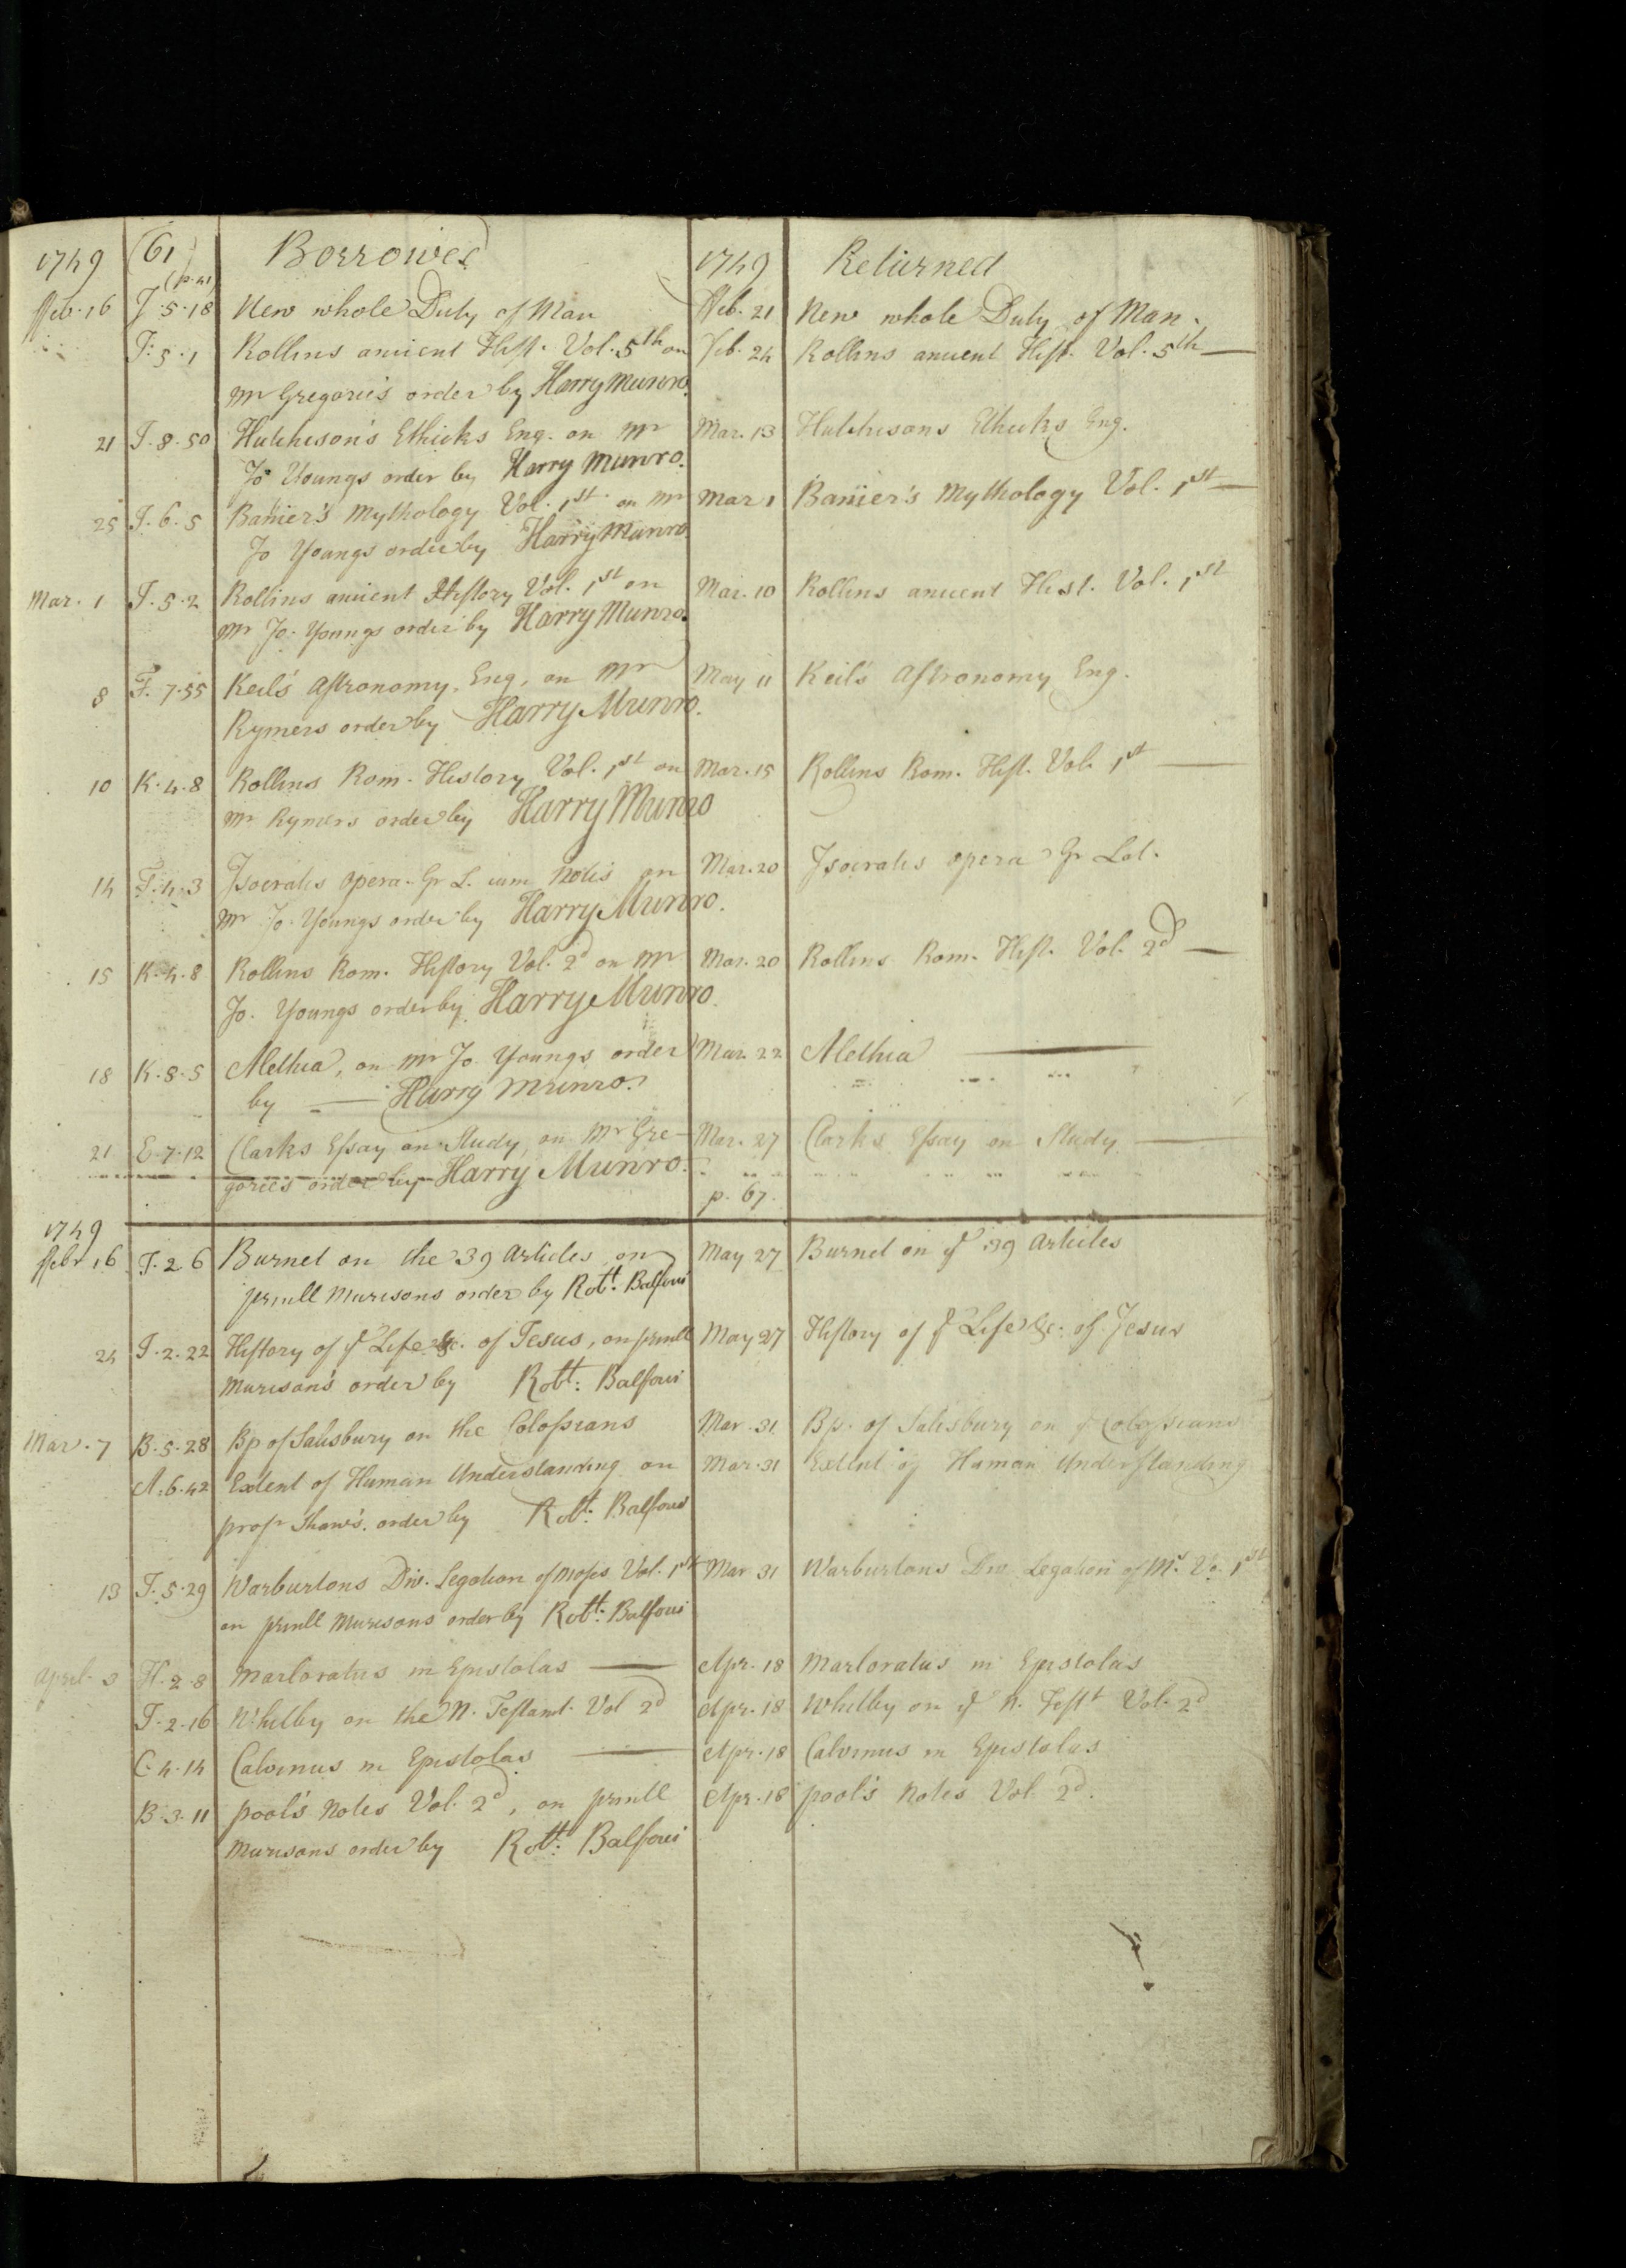 1749 (61) Borrowed 1749 Returned
(p. 41)
Feb. 16 J. 5. 18 New whole Duty of Man Feb. 21 New whole Duty of Man.
J. 5. 1 Rollins ancient Hist. Vol. 5th on Feb. 24 Rollins ancient Hist. Vol. 5th —
Mr Gregorie's order by Harry Munro.
21 J. 8. 50 Hutcheson's Ethicks Eng. on Mr Mar. 13 Hutchesons Ethicks Eng.
Jo Youngs order by Harry Munro.
25 J. 6. 5 Banier's Mythology Vol. 1st on Mr Mar 1 Banier's Mythology Vol. 1st —
Jo Youngs order by Harry Munro
Mar. 1 J. 5. 2 Rollins ancient History Vol. 1st on Mar. 10 Rollins ancient Hist. Vol. 1st
Mr Jo. Youngs order by Harry Munro.
8 F. 7. 55 Keil's Astronomy, Eng. on Mr May 11 Keil's Astronomy Eng.
Rymers order by Harry Munro.
10 K. 4. 8 Rollins Rom. History Vol. 1st on Mar. 15 Rollins Rom. Hist. Vol. 1st —
Mr Rymers order by Harry Munro
14 F. 4. 3 Isocratis opera Gr L. cum Notis on Mar. 20 Isocratis opera Gr Lat.
Mr Jo. Youngs order by Harry Munro.
15 K. 4. 8 Rollins Rom. History Vol. 2d on Mr Mar. 20 Rollins Rom. Hist. Vol. 2d —
Jo. Youngs order by Harry Munro.
18 K. 8. 5 Alethia, on Mr Jo Youngs order Mar. 22 Alethia —
by — Harry Munro.
21 E. 7. 12 Clarks Essay on Study, on Mr Gre- Mar. 27 Clarks Essay on Study —
gories order by Harry Munro.
p. 67.
1749
Febr 16 J. 2 6 Burnet on the 39 Articles on May 27 Burnet on ye 39 Articles
prinll Murisons order by Robtt. Balfour
24 J. 2. 22 History of ye Life &c. of Jesus, on prinll May 27 History of ye Life &c. of Jesus
Murison's order by Robtt: Balfour
Mar. 7 B. 5. 28 Bp of Salisbury on the Colossians Mar. 31 Bp. of Salisbury on ye Colossians
A. 6. 42 Extent of Human Understanding on Mar. 31 Extent of Human Understanding
profr Shaw's. order by Robt: Balfour
13 J. 5. 29 Warburtons Div. Legation of Moses Vol. 1st Mar 31 Warburtons Div Legation of Ms Vo. 1st
on prinll Murisons order by Robtt: Balfour
April 3 H. 2. 8 Marloratus in Epistolas — Apr. 18 Marloratus in Epistolas
J. 2. 16 Whitby on the N. Testamt. Vol 2d Apr. 18 Whitby on ye N. Testt Vol. 2d
C. 4. 14 Calvinus in Epistolas — Apr. 18 Calvinus in Epistolas
B. 3. 11 pool's Notes Vol. 2d, on prinll Apr. 18 pool's Notes Vol. 2d.
Murisons order by Robtt: Balfour